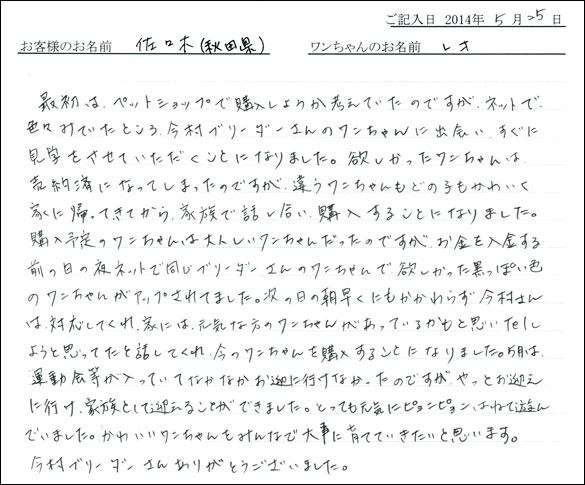 ご記入日 2014年 5月 25日
お客様のお名前 佐々木(秋田県) ワンちゃんのお名前 レオ
最初は、ペットショップで購入しようか考えていたのですが、ネットで
色々みていたところ、今村ブリーダーさんのワンちゃんに出会い、すぐに
見学をさせていただくことになりました。欲しかったワンちゃんは、
売約済になってしまったのですが、違うワンちゃんもどの子もかわいく
家に帰ってきてから、家族で話し合い、購入することになりました。
購入予定のワンちゃんは大人しいワンちゃんだったのですが、お金を入金する
前の日の夜ネットで同じブリーダーさんのワンちゃんで欲しかった黒っぽい色
のワンちゃんがアップされてました。次の日の朝早くにもかかわらず今村さん
は、対応してくれ、家には、元気な方のワンちゃんがあっているかもと思いtelし
ようと思ってたと話してくれ、今のワンちゃんを購入することになりました。5月は、
運動会等が入っていてなかなかお迎に行けなかったのですが、やっとお迎え
に行け、家族として迎えることができました。とっても元気にピョンピョンはねて遊ん
でいました。かわいいワンちゃんをみんなで大事に育てていきたいと思います。
今村ブリーダーさんありがとうございました。